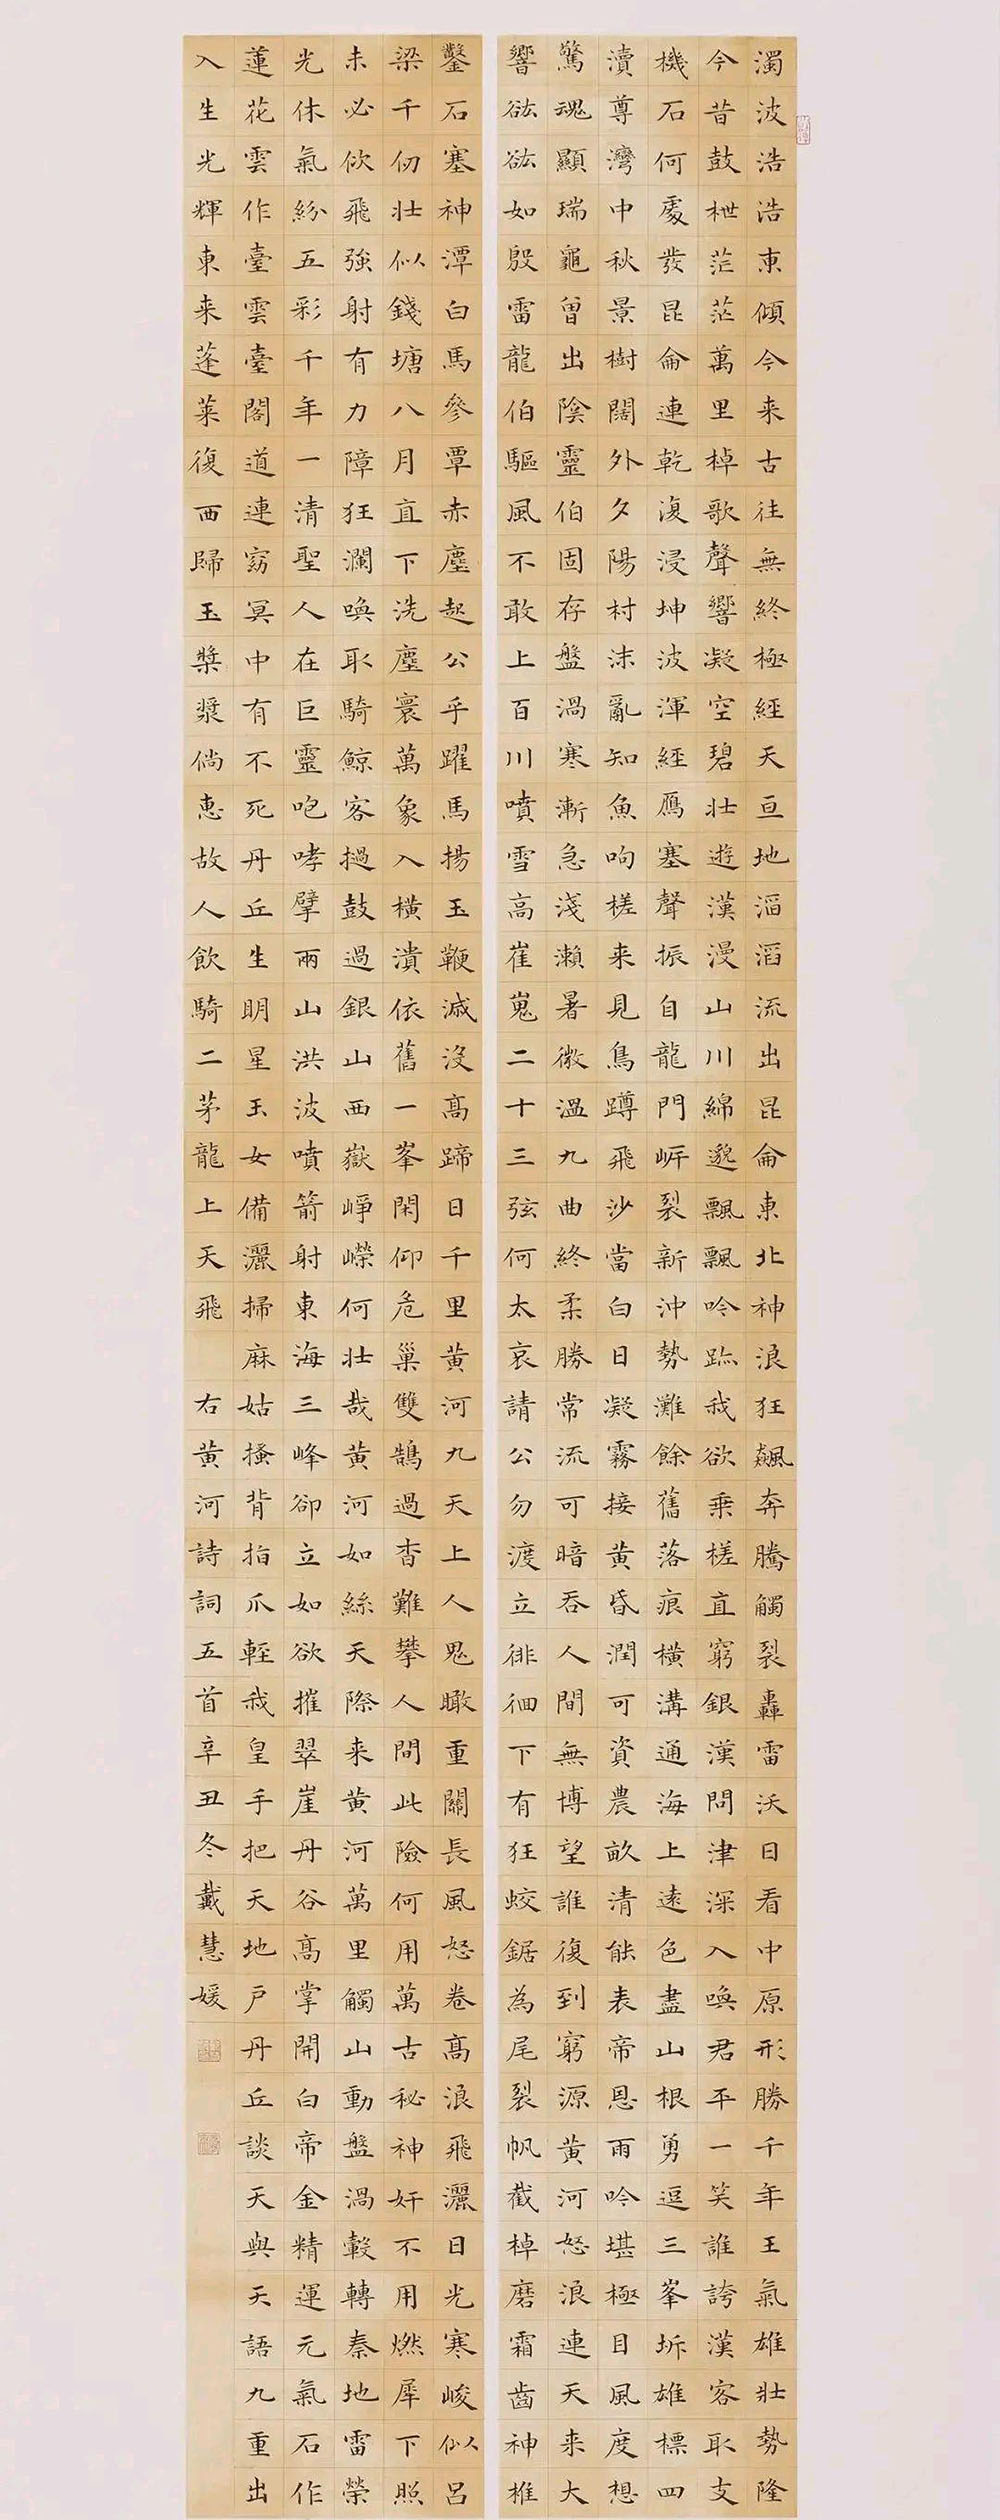 濁波浩浩東傾今来古往無終極經天亘地滔滔流出昆侖東北神浪狂飆奔騰觸裂轟雷沃日看中原形勝千年王氣雄壯勢隆
今昔鼓枻茫茫萬里棹歌聲響凝空碧壯遊漢漫山川綿邈飄飄吟跡我欲乗槎直窮銀漢問津深入喚君平一笑誰誇漢客取支
機石何處發昆侖連乾復浸坤波渾經鴈塞聲振自龍門岸裂新沖勢灘餘舊落痕橫溝通海上遠色盡山根勇逗三峯坼雄標四
瀆尊灣中秋景樹闊外夕陽村沫亂知魚响槎来見鳥蹲飛沙當白日凝霧接黄昏潤可資農畝清能表帝恩雨吟堪極目風度想
驚魂顯瑞龜曽出陰靈伯固存盤渦寒漸急淺瀨暑微溫九曲終柔勝常流可暗吞人間無博望誰復到窮源黄河怒浪連天来大
響谹谹如殷雷龍伯驅風不敢上百川噴雪高崔嵬二十三弦何太哀請公勿渡立徘徊下有狂蛟鋸為尾裂帆截棹磨霜齒神椎
鑿石塞神潭白馬參覃赤塵起公乎躍馬揚玉鞭滅沒髙蹄日千里黄河九天上人鬼瞰重關長風怒卷髙浪飛灑日光寒峻似呂
梁千仞壯似錢塘八月直下洗塵寰萬象入橫潰依舊一峯閑仰危巢雙鵠過杳難攀人間此險何用萬古秘神奸不用燃犀下照
未必佽飛強射有力障狂瀾喚取騎鯨客撾鼓過銀山西嶽崢嶸何壯哉黄河如絲天際来黄河萬里觸山動盤渦轂轉秦地雷榮
光休氣紛五彩千年一清聖人在巨靈咆哮擘兩山洪波噴箭射東海三峰卻立如欲摧翠崖丹谷髙掌開白帝金精運元氣石作
蓮花雲作臺雲臺閣道連窈冥中有不死丹丘生明星玉女備灑掃麻姑搔背指爪輕我皇手把天地户丹丘談天與天語九重出
入生光輝東来蓬莱復西歸玉漿漿倘惠故人飲騎二茅龍上天飛 右黄河詩詞五首辛丑冬戴慧媛